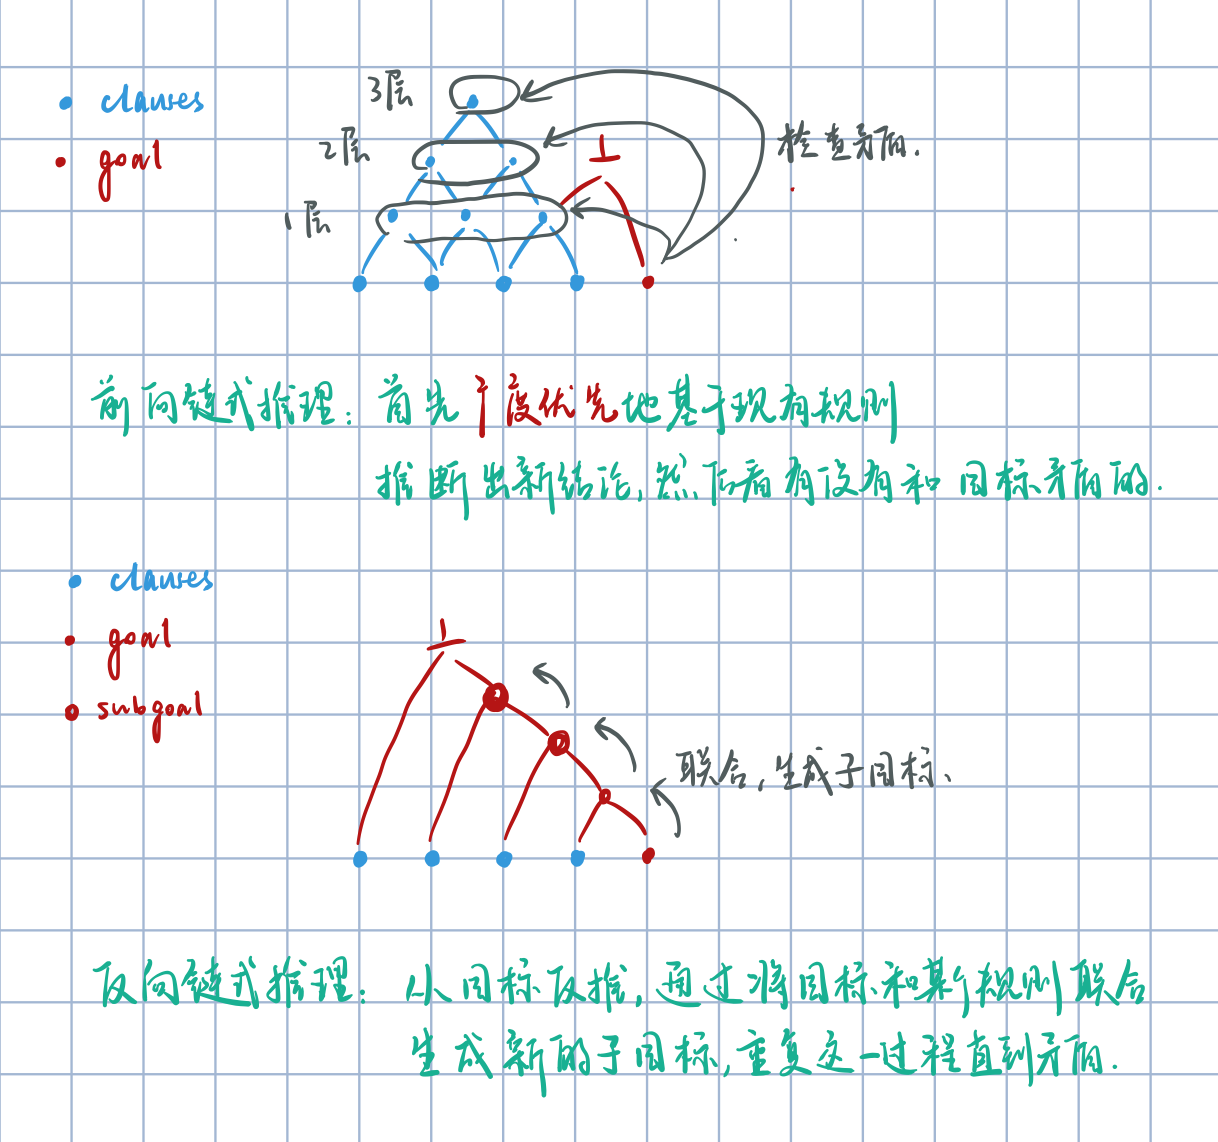 clauses
goal
3层
2层
1层
⊥
检查矛盾.
前向链式推理: 首先广度优先地基于现有规则
推断出新结论, 然后看有没有和目标矛盾的.
clauses
goal
subgoal
⊥
联合, 生成子目标、
反向链式推理: 从目标反推, 通过将目标和某个规则联合
生成新的子目标, 重复这一过程直到矛盾.